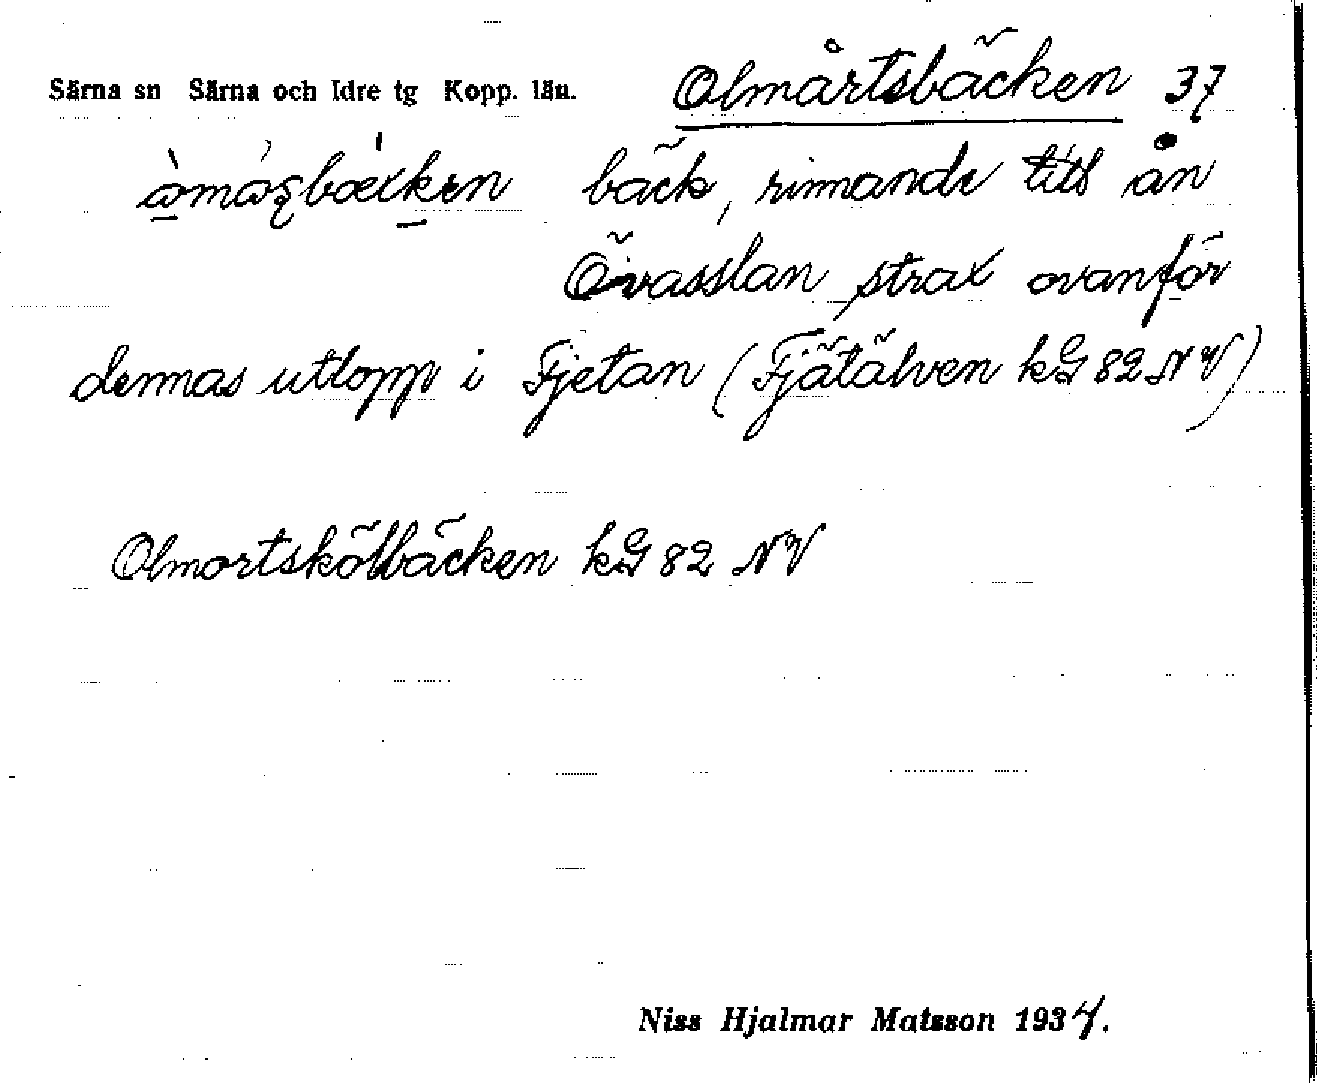 Särna sn Särna och Idre tg Kopp. län. Olmårtsbäcken 37
bäck, rinnande till ån
Övasslan strax ovanför
dennas utlopp i Fjetan (Fjätälven kG 82 NV)
Olmortskölbäcken kG 82 NV
Niss Hjalmar Matsson 1934.